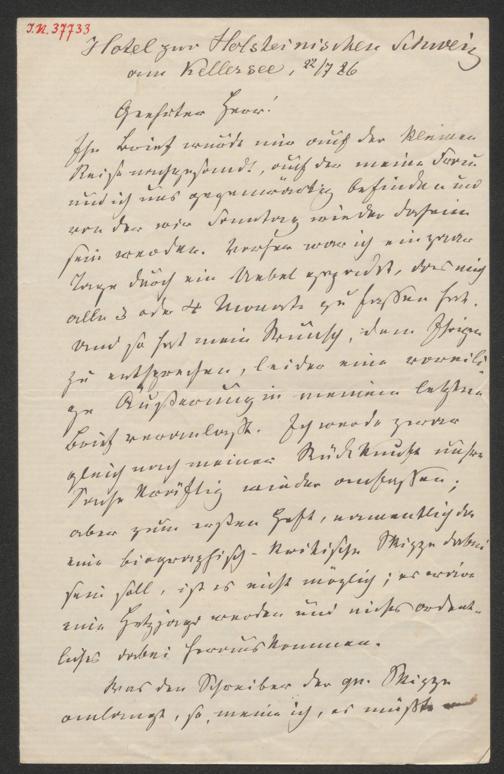 I.N. 37733
Hotel zur Holsteinischen Schweiz
am Kellersee, 22/7 86
Geehrter Herr!
Ihr Brief wurde mir auf der kleinen
Reise nachgesandt, auf der meine Frau
und ich uns gegenwärtig befinden und
von der wir Sonntag wieder daheim
sein werden. Vorher war ich ein paar
Tage durch ein Uebel gepackt, das mich
alle 3 oder 4 Monate zu fassen hat.
Und so hat mein Wunsch, dem Ihrigen
zu entsprechen, leider eine voreili-
ge Äußerung in meinem letzten
Brief veranlaßt. Ich werde zwar
gleich nach meiner Rückkunft unsre
Sache kräftig wieder anfassen;
aber zum ersten Heft, namentlich da
eine biographisch-kritische Skizze dabei
sein soll, ist es nicht möglich; es würde
eine Hetzjagd werden und nichts ordent-
liches dabei herauskommen.
Was den Schreiber der qu. Skizze
anlangt, so, meine ich, es müßte